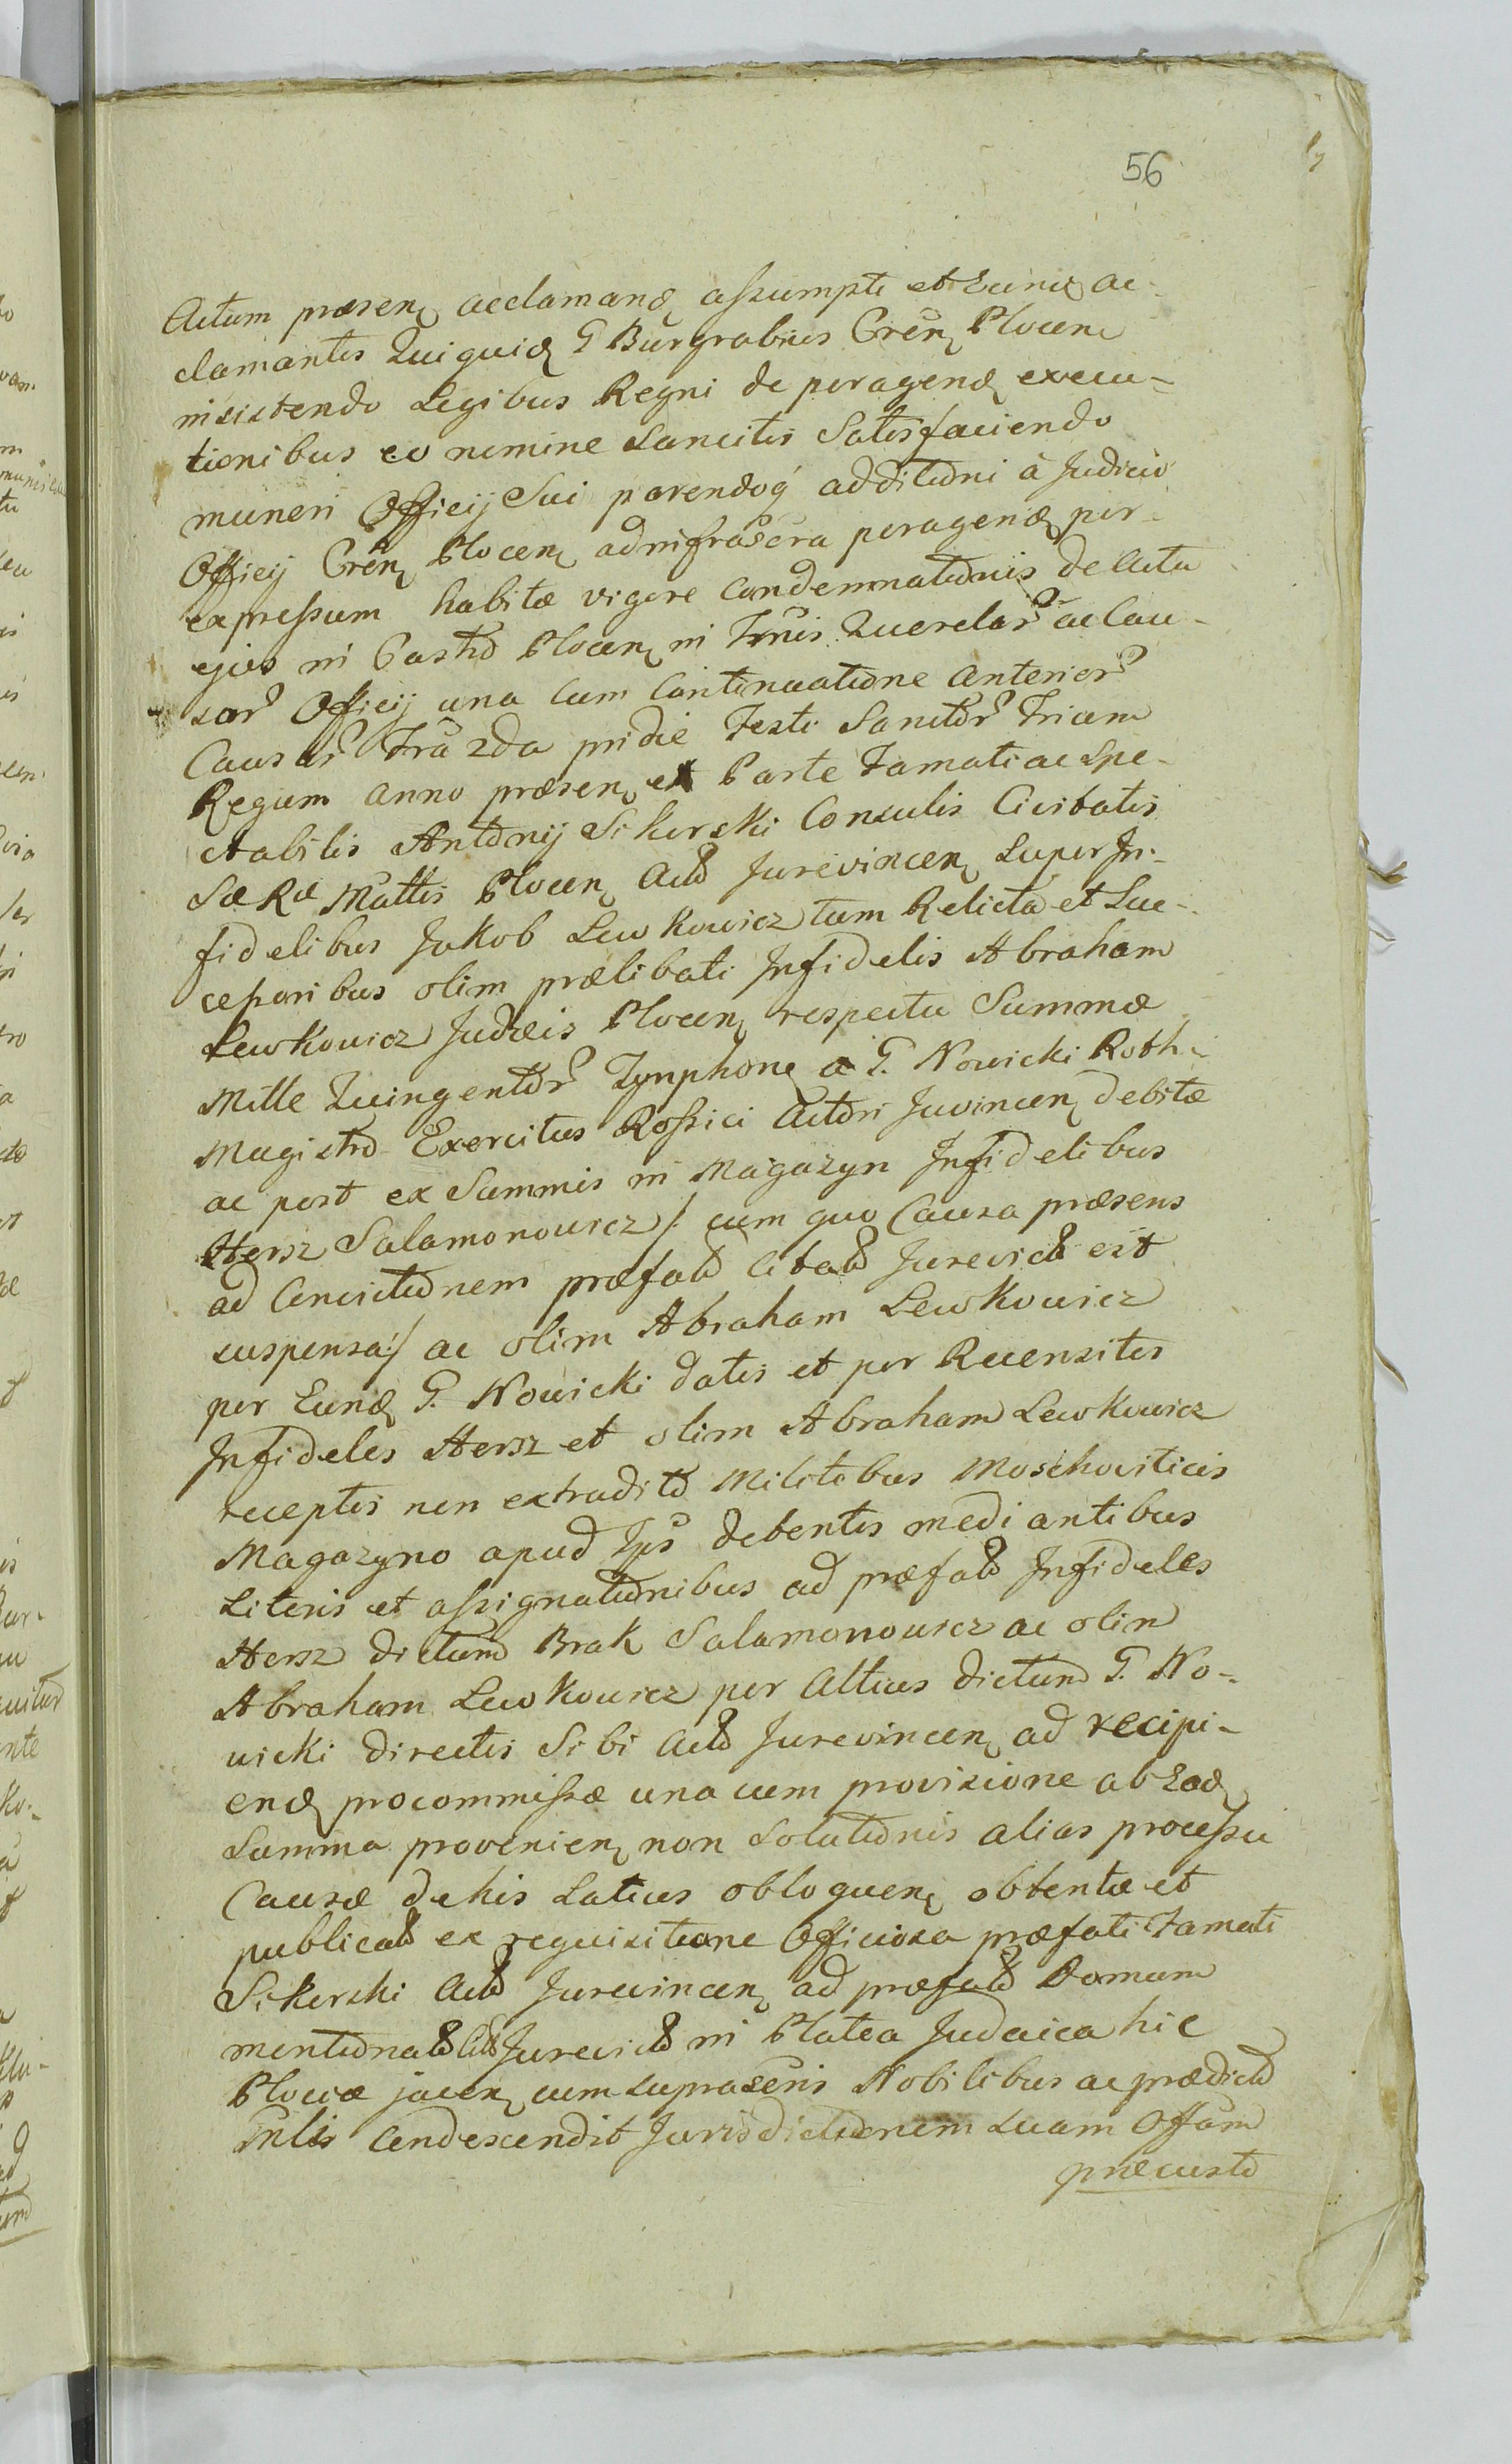 56
Actum præsen acclamand assumpti et Eund ac-
clamantis Qui quid G Burgrabius Cren Plocen
insistendo Legibus Regni de peragend execu-
tionibus eo nomine sancitis Satisfaciendo
muneri Officij Sui parendoq additioni à Judicio
Officij Cren Plocen ad infrascra peragend per-
expressum habitæ vigore Condemnationis de Actu
ejus in Castro Plocen in Trnis Querelar ac Cau-
sar Officij una cum Continuatione Anterior
Causar Fra 2da pridie Festi Sanctor Trium
Regum Anno præsen ex Parte Famati ac Spe-
ctabilis Antonij Sikorski Consulis Civitatis
Sæ Ræ Mattis Plocen Acto Jurevincen super In-
fidelibus Jakob Lewkowicz tum Relicta et Suc-
cessoribus olim prælibati Infidelis Abraham
Lewkowicz Judæis Plocen respectu Summæ
Mille Quingentor Tynphon a G. Nowicki Roth-
Magistro Exercitus Rossici Actori Juvincen debitæ
ac post ex Summis in Magazyn Infidelibus
Hersz Salamonowicz /: cum quo Causa præsens
ad Convictionem præfato Citato Jurevicto est
suspensa :/ ac olim Abraham Lewkowicz
per Eund G. Nowicki datis et per Recensitos
Infideles Hersz et olim Abraham Lewkowicz
receptis non extradito Militibus Moschoviticis
Magazyno apud Ips debentis mediantibus
Literis et assignationibus ad præfato Infideles
Hersz dictum Brak Salamonowicz ac olim
Abraham Lewkowicz per Altius dictum G. No-
wicki directis Sibi Acto Jurevincen ad recipi-
end pro commissæ una cum provisione ab Ead
Summa provenien non Solutionis alias processu
Causæ de his Latius obloquen obtentæ et
publicato ex requisitione Officiosa præfati Famati
Sikorski Acto Jurevincen ad præfato Domum
mentionato Cito Jurevicto in Platea Judaica hic
Plociæ jacen cum suprascris Nobilibus ac prædicto
Mlis Condescendit Jurisdictionem suam Offam
præcusto